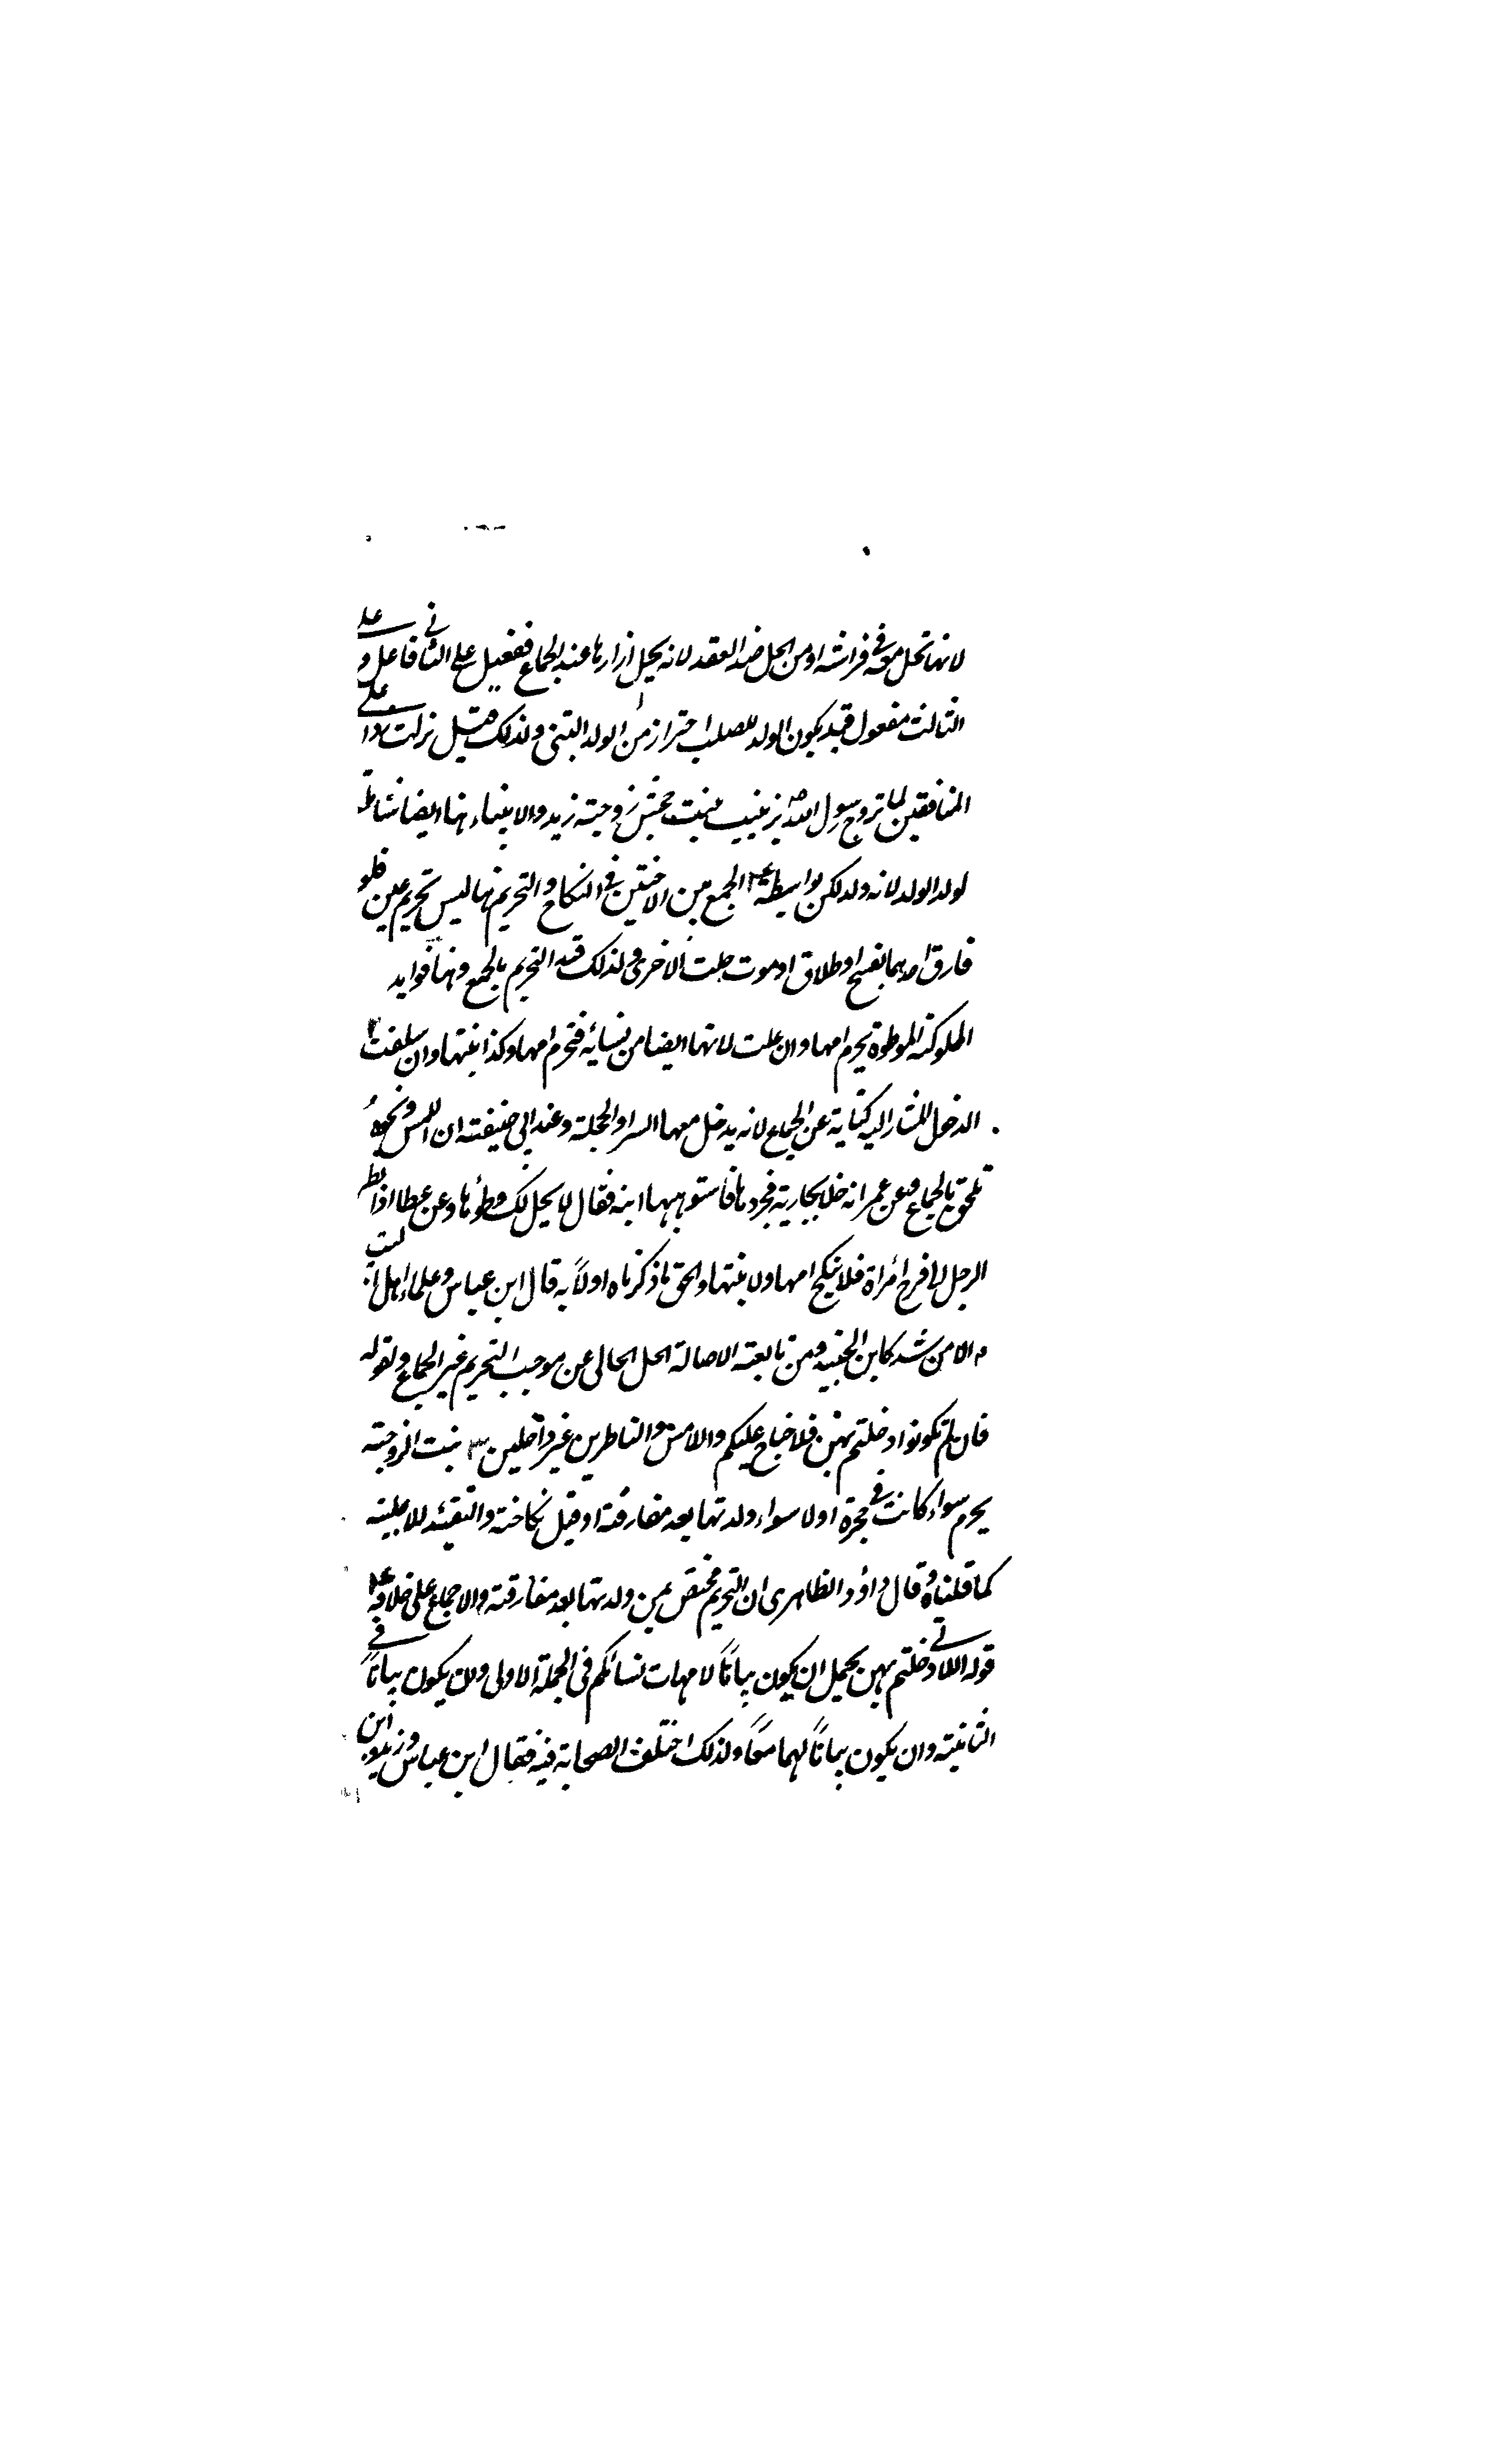 لانها تحل معه في فراشه او من الحل ضد العقد لانه يحل ازارها عند الجماع ففعيل على الثاني فاعل و على
الثالث مفعول قيد يكون الولد للصلب احتراز من الولد التبني ولذلك قيل نزلت ردا على
المنافقين لما تزوج رسول الله ص بزينب بنت جحش زوجته زيد والابناء هنا ايضا شاملة
لولد الولد لانه ولد لكن بواسطة الجمع بين الاختين في النكاح والتحريم هنا ليس تحريم عين فلو
فارق احدهما بفسخ او طلاق او موت حلت الاخرى ولذلك قيد التحريم بالجمع وهنا فوايد
المملوكة الموطوة تحرم امها وان علت لانها ايضا من نسائه فتحرم امها وكذا بنتها وان سلفت
الدخول المشار اليه كناية عن الجماع لانه يدخل معها السر او الحجلة وعند ابي حنيفته ان اللمس ونحوه
تلحق بالجماع وعن عمر انه خلا بجارية فجردها فاستوهبها ابنه فقال لا يحل لك وطؤها وعن عطا اذا نظر
الرجل الى فرج امراة فلا ينكح امها ولا بنتها والحق ما ذكرناه اولاً به قال ابن عباس وعلماء اهل البيت
م الا من شذ كابن الجنيد ومن تابعه الاصالة الحل الخالي عن موجب التحريم غير الجماع ولقوله
فان لم تكونوا دخلتم بهن فلا جناح عليكم والامس والناظرين غير داخلين ٣ بنت الزوجته
يحرم سواء كانت في حجرة اولا سواء ولدتها بعد مفارقته او قبل نكاحته والتقئد للاغلبيته
كما قلناه وقال داؤد الظاهري ان التحريم مختص بمن ولدتها بعد مفارقته والاجماع على خلافه
قوله اللاتي دخلتم بهن يحمل ان يكون بياناً لامهات نسائكم في الجملة الاولى وان يكون بياناً في
الثانيته وان يكون بياناً لهما معاً ولذلك اختلف الصحابة فيه فقال ابن عباس وزيد وابن